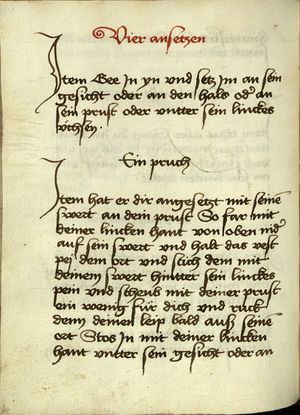 Vier ansetzen
Item Gee In yn vnd setz Im an sein
gesicht oder an den hals oder an
sein prust oder vntter sein linckes
vchsen
Ein pruch
Item hat er dir angesetzt mit seinē
swert an dein prust So far mit
deiner lincken hant von oben nid'
auf sein swert vnd halt das vest
pej dem ort vnd slich dem mit
deinem swert hintter sein linckes
pein vnd scheub mit deiner prust
ein wenig für dich vnd ruck
dem deinen leip bald auß seinē
ort Stos In mit deiner lincken
hant vntter sein gesicht oder an